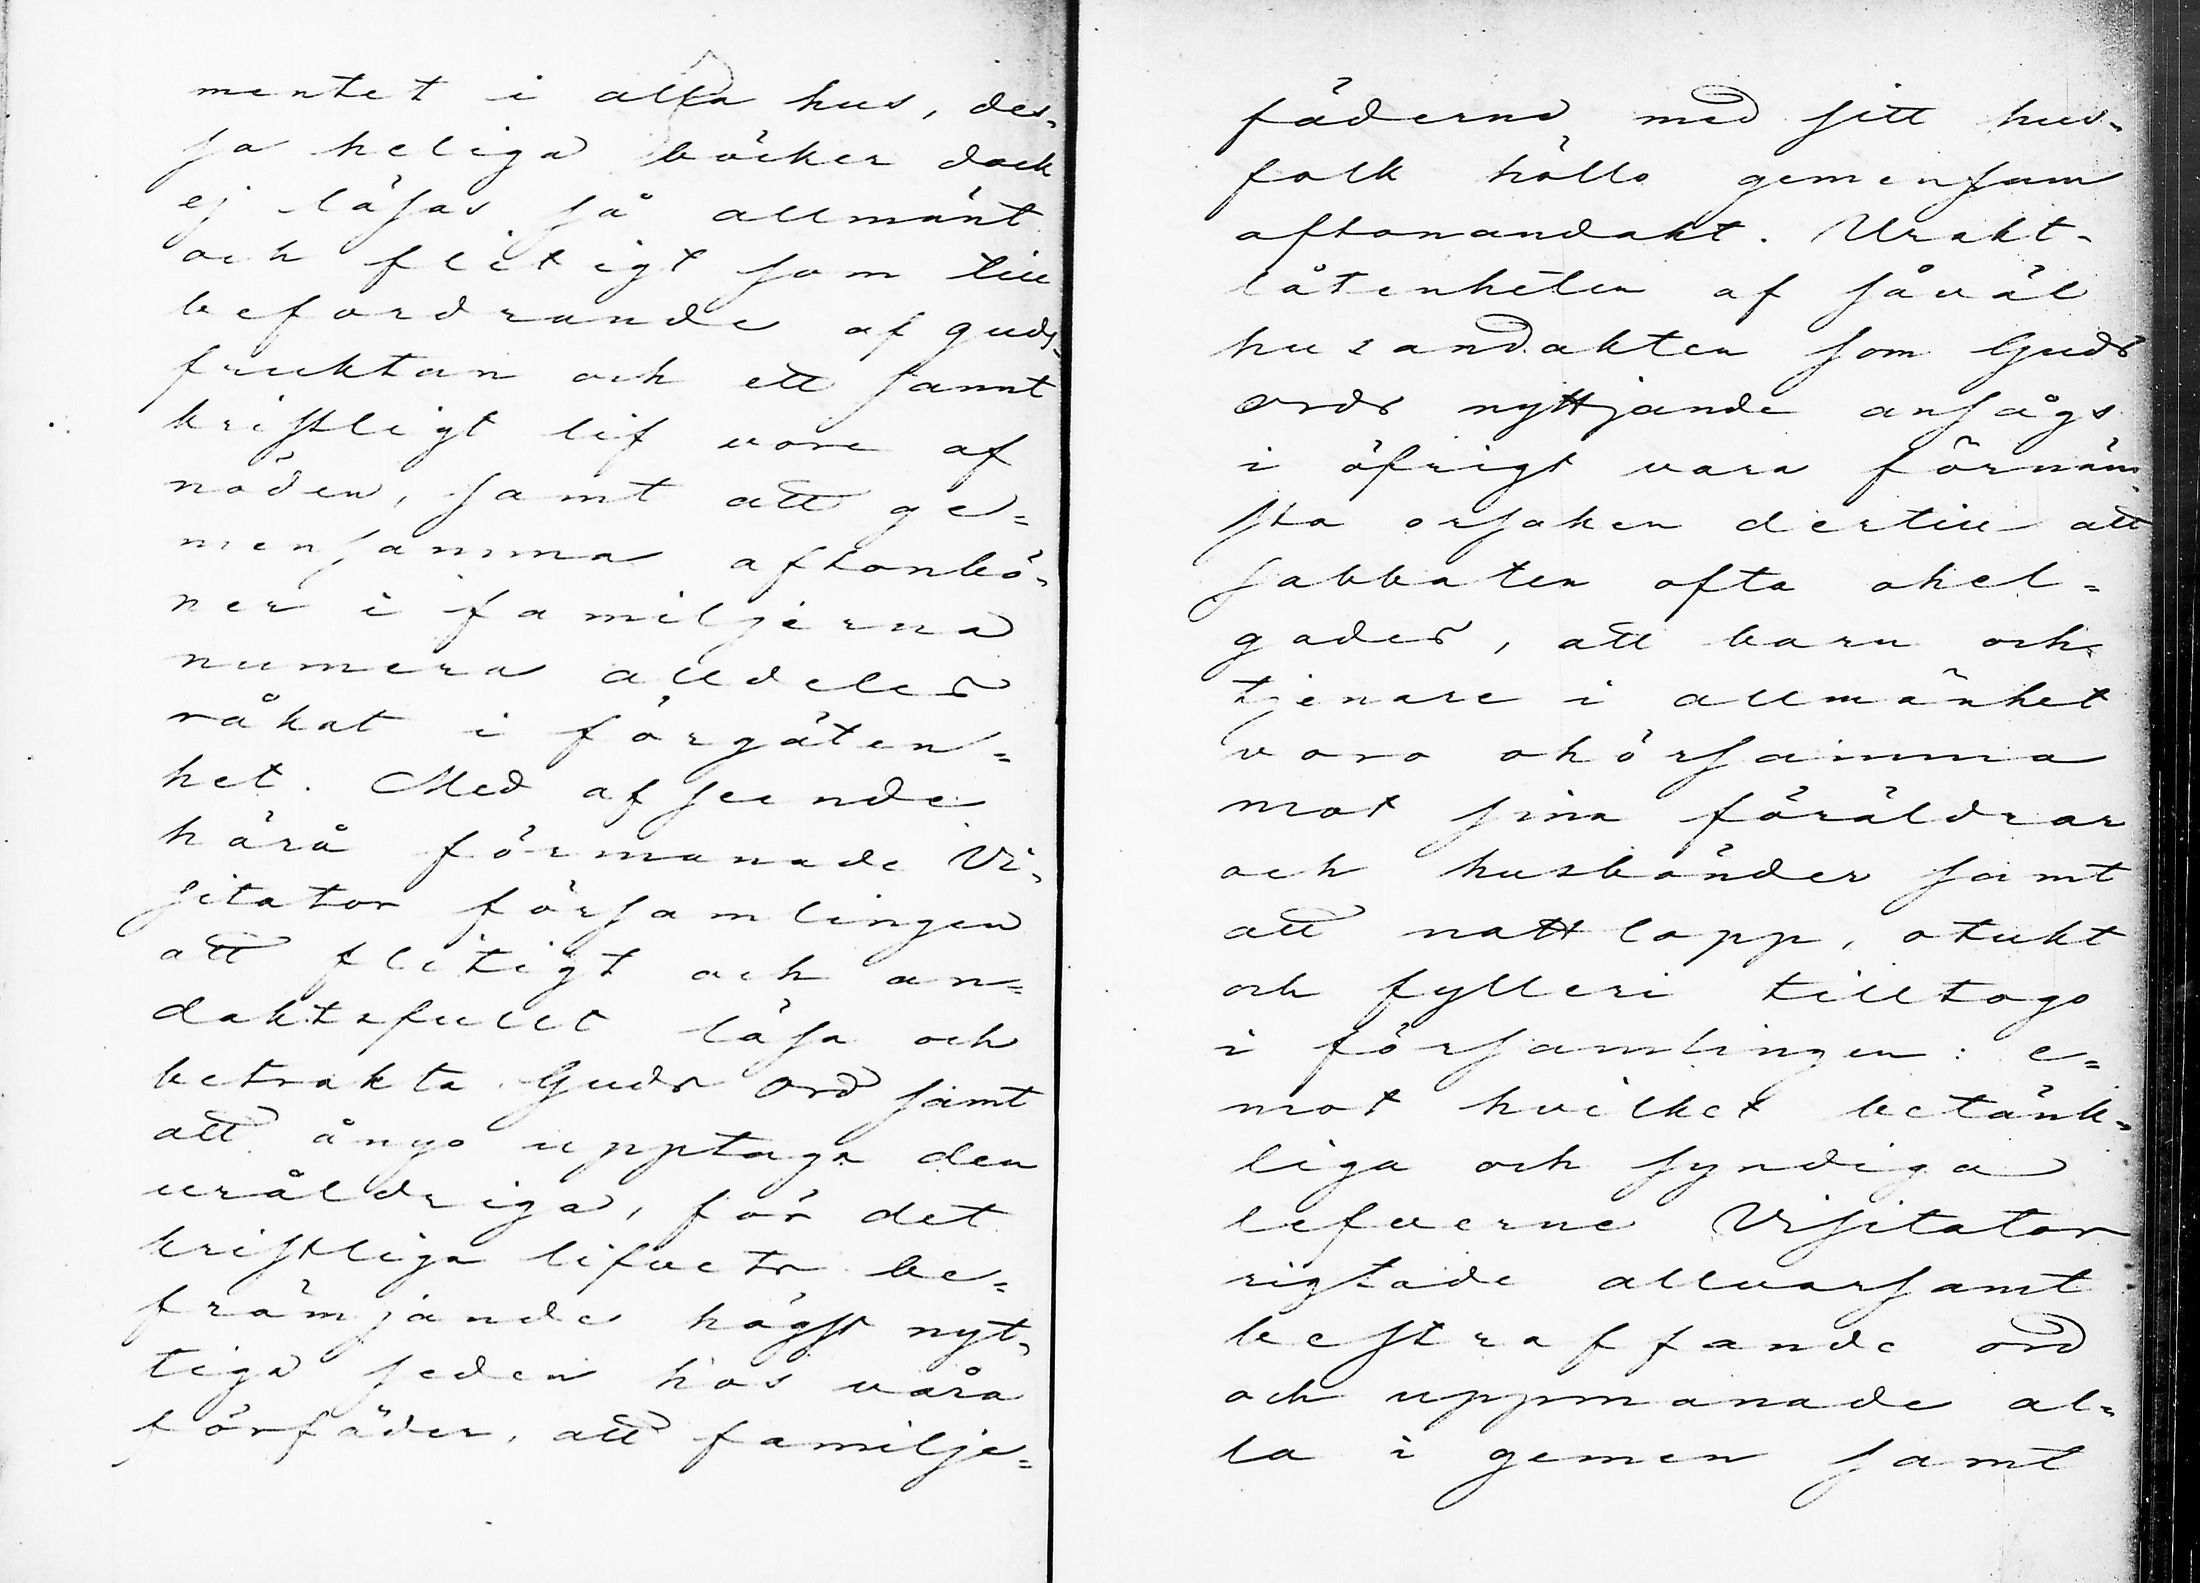 mentet i alla hus, des-
sa heliga böcker dock
ej läsas så allmänt
och flitigt som till
befordrande af guds-
fruktan och ett sannt
kristligt lif vore af
nöden, samt att ge=
mensamma aftonbö-
ner i familjerna
numera alldeles
råkat i förgäten=
het. Med afseende
härå förmanade Vi-
sitator församlingen
att flitigt och an=
daktsfullt läsa och
betrakta Guds Ord samt
att ånyo upptaga den
uråldriga, för det
kristliga lifvets be=
främjande högst nyt-
tiga seden hos våra
förfäder, att familje=
fäderna med sitt hus-
folk höllo gemensam
aftonandakt. Urakt-
låtenheten af såväl
husandakten som Guds
ords nyttjande ansågs
i öfrigt vara förnäm-
sta orsaken dertill att
sabbaten ofta ohel=
gades, att barn och
tjenare i allmänhet
voro ohörsamma
mot sina föräldrar
och husbönder samt
att nattlopp, otukt
och fylleri tilltogo
i församlingen: e=
mot hvilket betänk-
liga och syndiga
lefverne Visitator
rigtade allvarsamt
bestraffande ord
och uppmanade al=
la i gemen samt